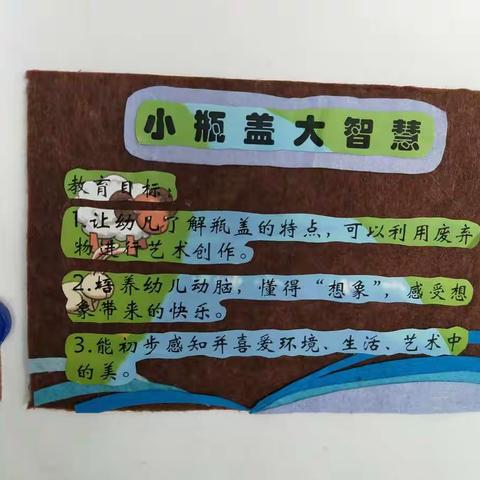 小瓶盖大智慧
教育目标：
1.让幼儿了解瓶盖的特点，可以利用废弃
物进行艺术创作。
2.培养幼儿动脑，懂得“想象”，感受想
象带来的快乐。
3.能初步感知并喜爱环境、生活、艺术中
的美。